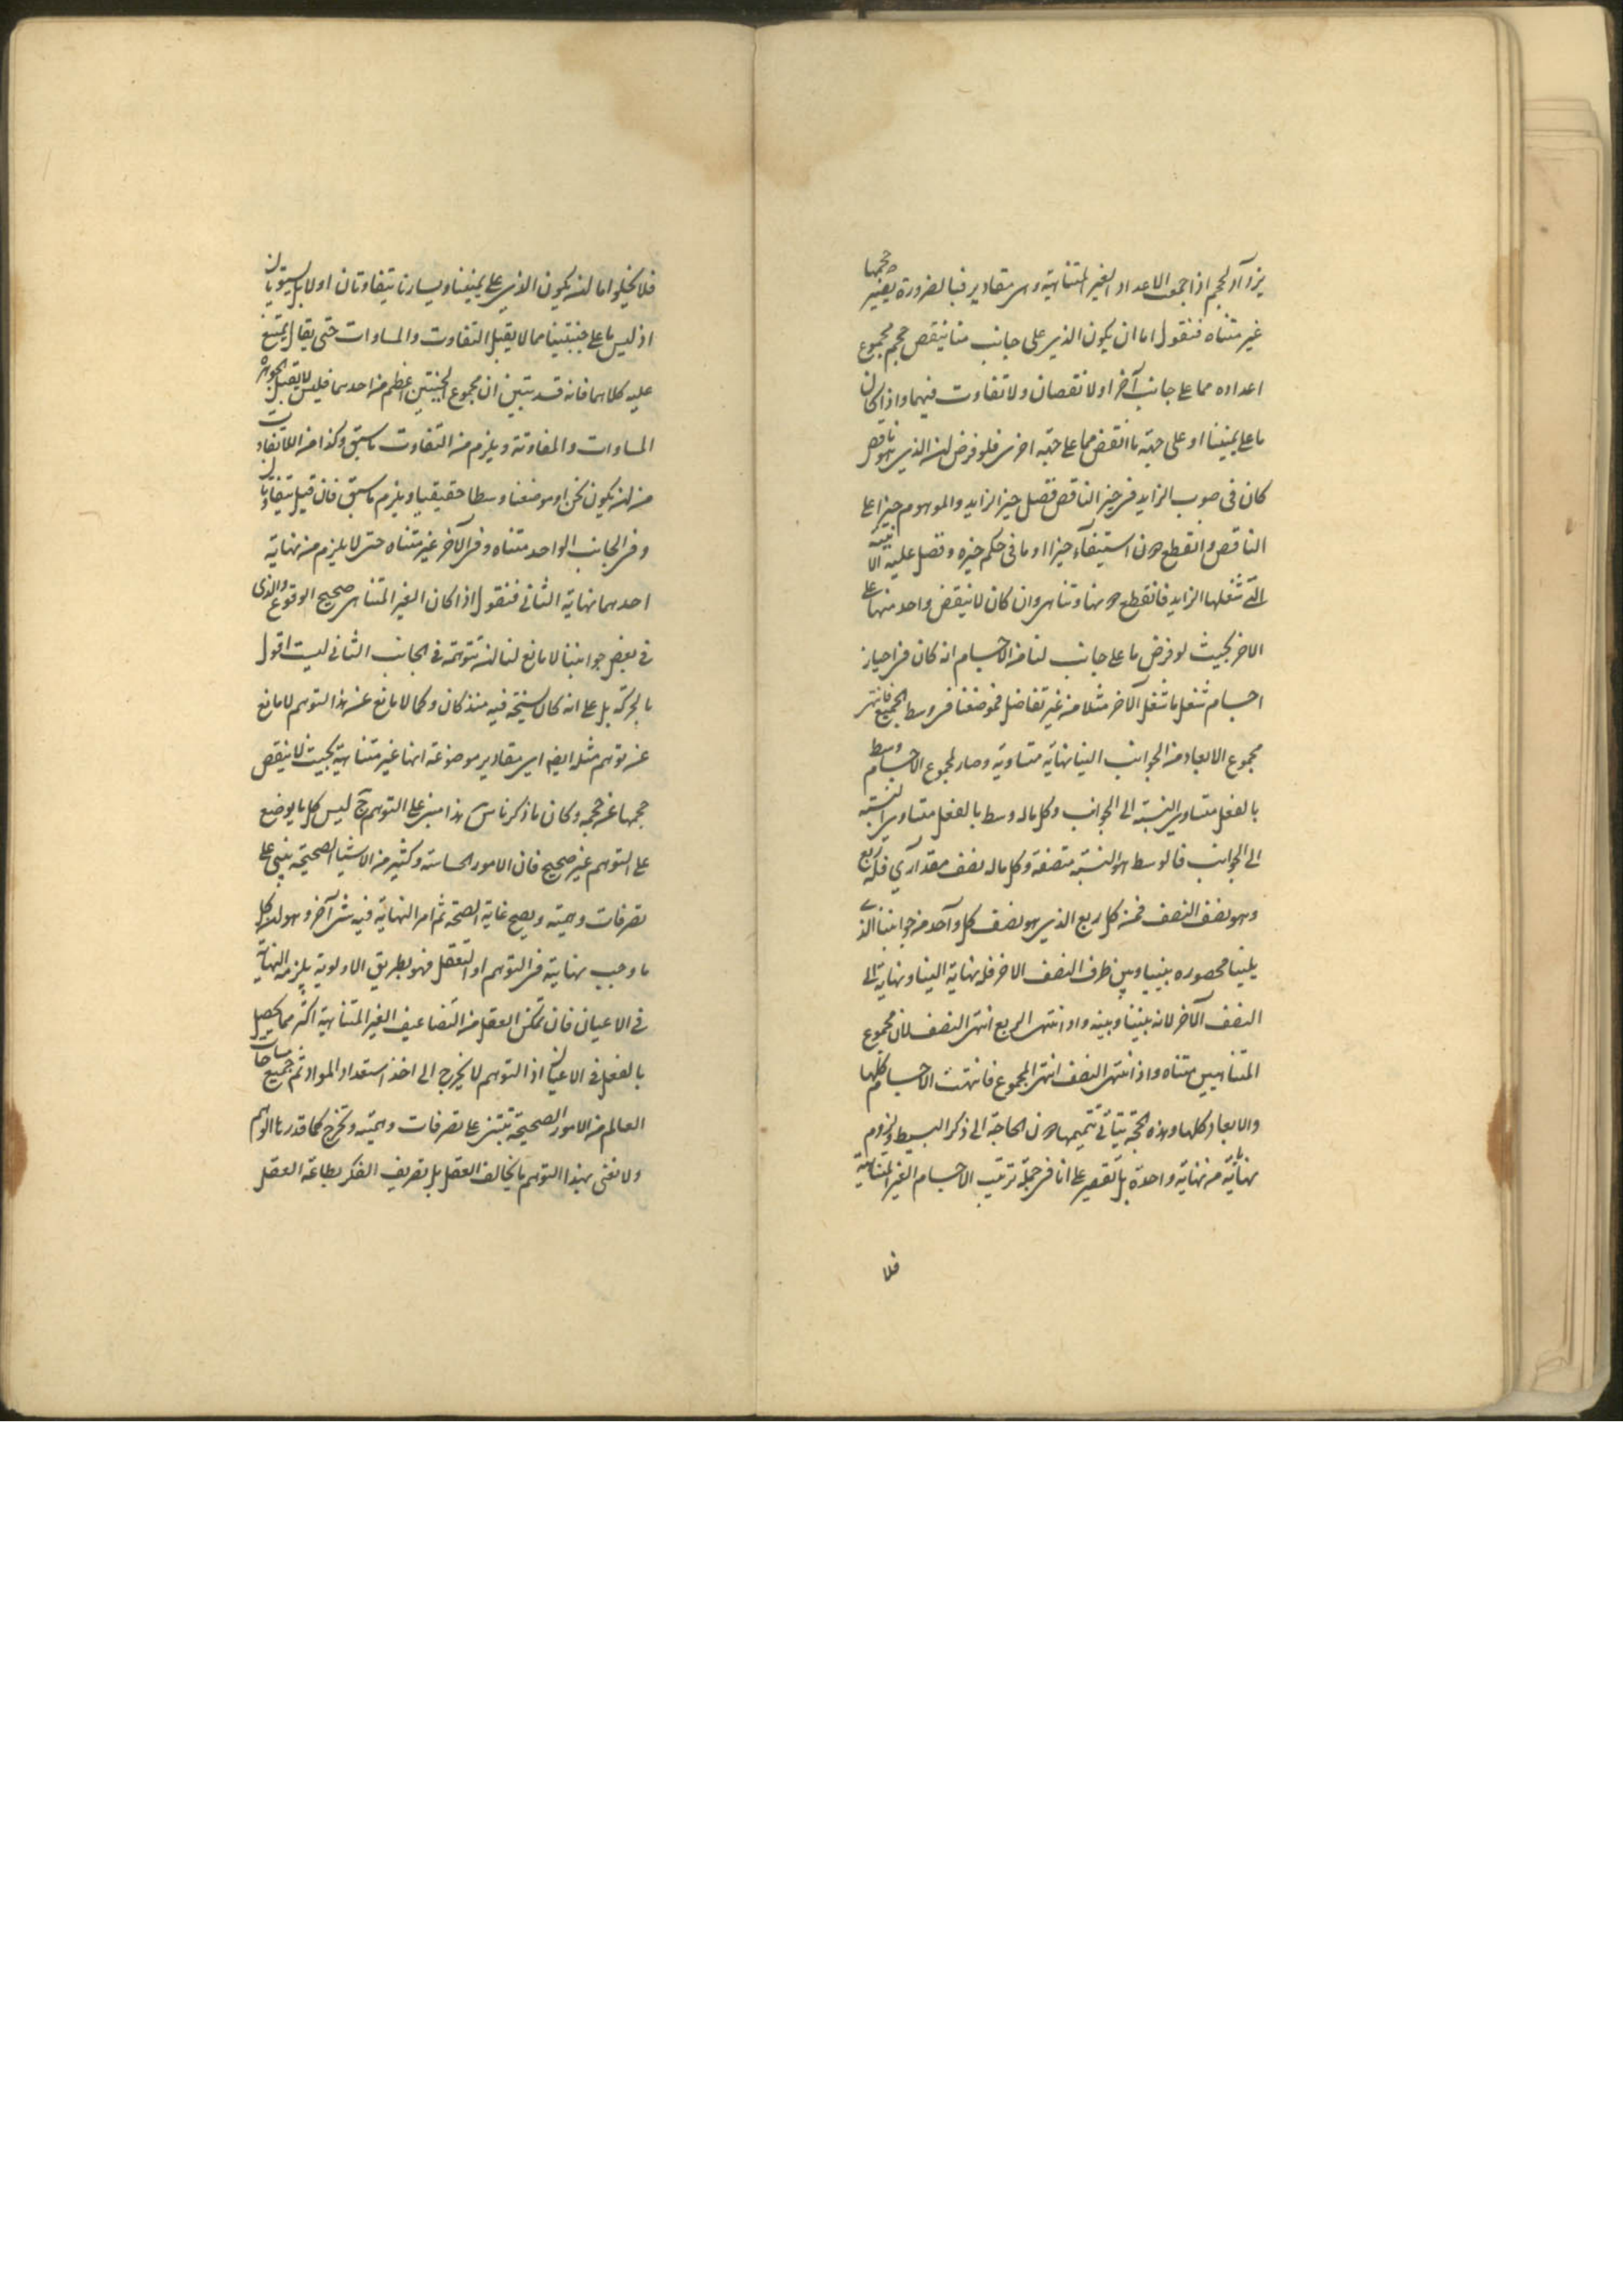 يزداد الحجم اذا جمع الاعداد الغير المتناهية وهى مقادير فبالضرورة يصير حجمها
غير متناه فنقول اما ان يكون الذى على جانب منا ينقص حجم مجموع
اعداده مما على جانب آخر او لا نقصان ولا تفاوت فيهما واذا كان
ما على يميننا او على جهة ما انقص مما على جهة اخرى فلو فرض ان الذى هو ناقص
كان فى صوب الزايد فى حيز الناقص فضل حيز الزايد والموهوم حيزا على
الناقص وانقطع دون استيفاء حيز او ما فى حكم حيزه وفضل عليه
التى شغلها الزايد فانقطع دونها وتناهى وان كان لا ينقص واحد منها على
الاخر بحيث لو فرض ما على جانب لنا من الاجسام انه كان فى احياز
اجسام شغل ما شغل الآخر مثلا من غير تفاضل فموضعنا فى وسط الجميع فانتهى
مجموع الابعاد من الجوانب الينا نهاية متساوية وصار لمجموع الاجسام وسط
بالفعل متساوى النسبة الى الجوانب وكل ماله وسط بالفعل متساوى النسبة
الى الجوانب فالوسط هو النسبة منصفة وكل ماله نصف مقدارى فله ربع
وهو نصف النصف فمن كل ربع الذى هو نصف كل واحد من جوانبنا الذى
يلينا محصوره بيننا وبين طرف النصف الاخر فله نهاية الينا ونهاية الى
النصف الآخر لانه بيننا وبينه واذا انتهى الربع انتهى النصف لان مجموع
المتناهيين متناه واذا انتهى النصف انتهى المجموع فانتهت الاجسام كلها
والابعاد كلها وهذه الحجة يتأتى تتميمها دون الحاجة الى ذكر البسيط ولزوم
نهاية من نهاية واحدة بل نقصر على انا فى جملة ترتيب الاجسام الغير المتناهية
فلا
فلا يخلوا اما ان يكون الذى على يميننا ويسارنا يتفاوتان او لا بل يستويان
اذ ليس ما على جنبتينا مما لا يقبل التفاوت والمساوات حتى يقال يمتنع
عليه كلاهما فانه قد تبين ان مجموع الجنبتين اعظم من احدهما فليس لا يقبل الجوهر
المساوات والمفاوتة ويلزم من التفاوت ما سبق وكذا من اللاتفاوت
من ان يكون نحن او موضعنا وسطا حقيقيا ويلزم ما سبق فان قيل يتفاوتان
وفى الجانب الواحد متناه وفى الآخر غير متناه حتى لا يلزم من نهاية
احدهما نهاية الثانى فنقول اذا كان الغير المتناهى صحيح الوقوع والذى
فى بعض جوانبنا لا مانع لنا ان نتوهمه فى الجانب الثانى ليست اقول
بالحركة بل على انه كان سنخه فيه منذ كان وكما لا مانع عن هذا التوهم لا مانع
عن توهم مثله ايضا اى مقادير موضوعة انها غير متناهية بحيث لا ينقص
حجمها عن حجمه وكان ما ذكرناه هذا مبنى على التوهم ليس كل ما يوضع
على التوهم غير صحيح فان الامور الحاسته وكثير من الاشيا الصحيحة يبتنى على
تصرفات وهمية ويصح غاية الصحة ثم امر النهاية فيه شى آخر وهو ان كل
ما وجب نهايته فى التوهم او التعقل فهو بطريق الاولوية يلزمه النهاية
فى الاعيان فان تمكن العقل من التضاعيف الغير المتناهية اكثر مما يحصل
بالفعل فى الاعيان اذ التوهم لا يخرج الى اخذ استعداد المواد ثم جميع مساحات
العالم من الامور الصحيحة تبتنى على تصرفات وهمية وتخرج كما قدرنا الوهم
ولا نعنى بهذا التوهم ما يخالف العقل بل تصريف الفكر بطاعة العقل